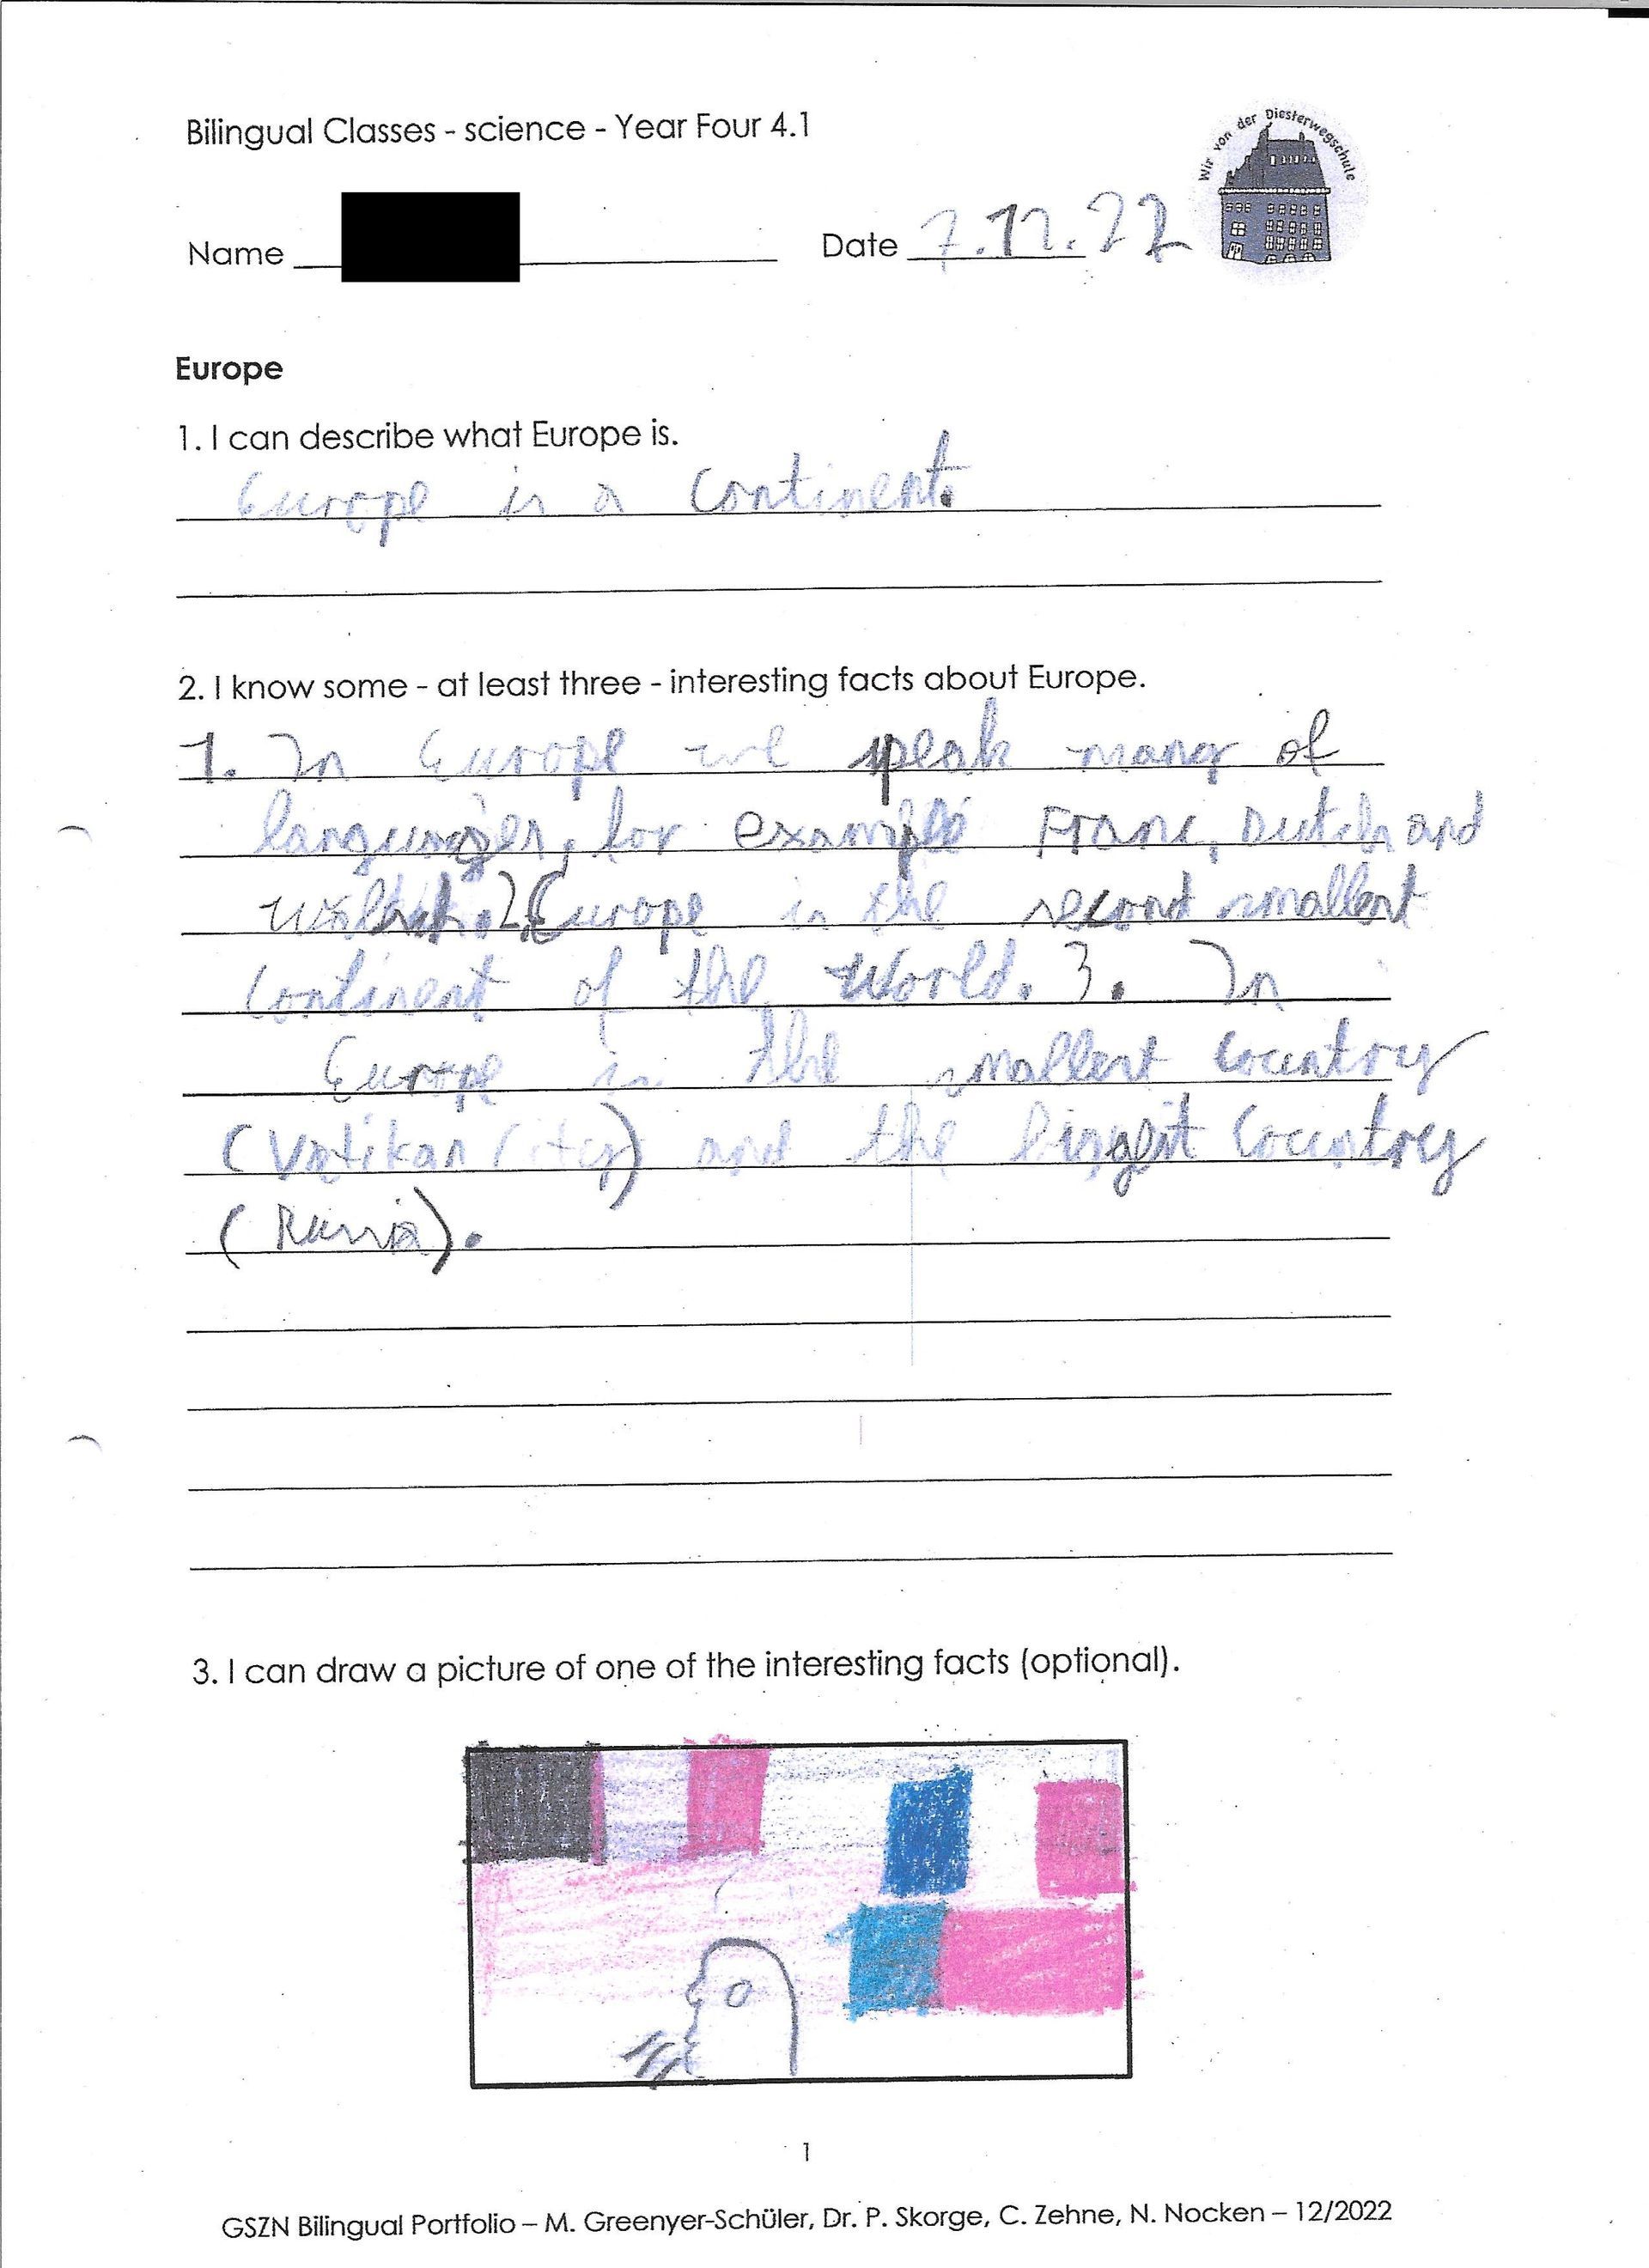 Bilingual Classes - science - Year Four 4.1
Wir von der Diesterwegschule
Name Date 7.12.22
Europe
1. I can describe what Europe is.
Europe is a continent.
2. I know some - at least three - interesting facts about Europe.
1. In Europe we speak many of
languages, for example Franc, Dutch and
2. Europe is the second smallest
continent of the world. 3. In
Europe is the smallest country
(Vatikan City) and the biggest country
(Russia).
3. I can draw a picture of one of the interesting facts (optional).
1
GSZN Bilingual Portfolio – M. Greenyer-Schüler, Dr. P. Skorge, C. Zehne, N. Nocken – 12/2022